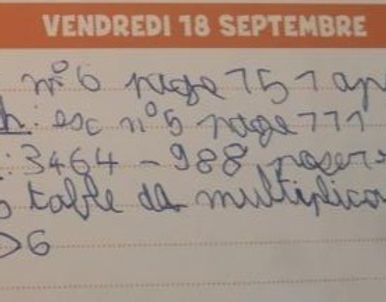 VENDREDI 18 SEPTEMBRE
n°6 page 151 ap
h: esc n°5 page 111
: 3464 - 988 poser
table de multiplica
>6